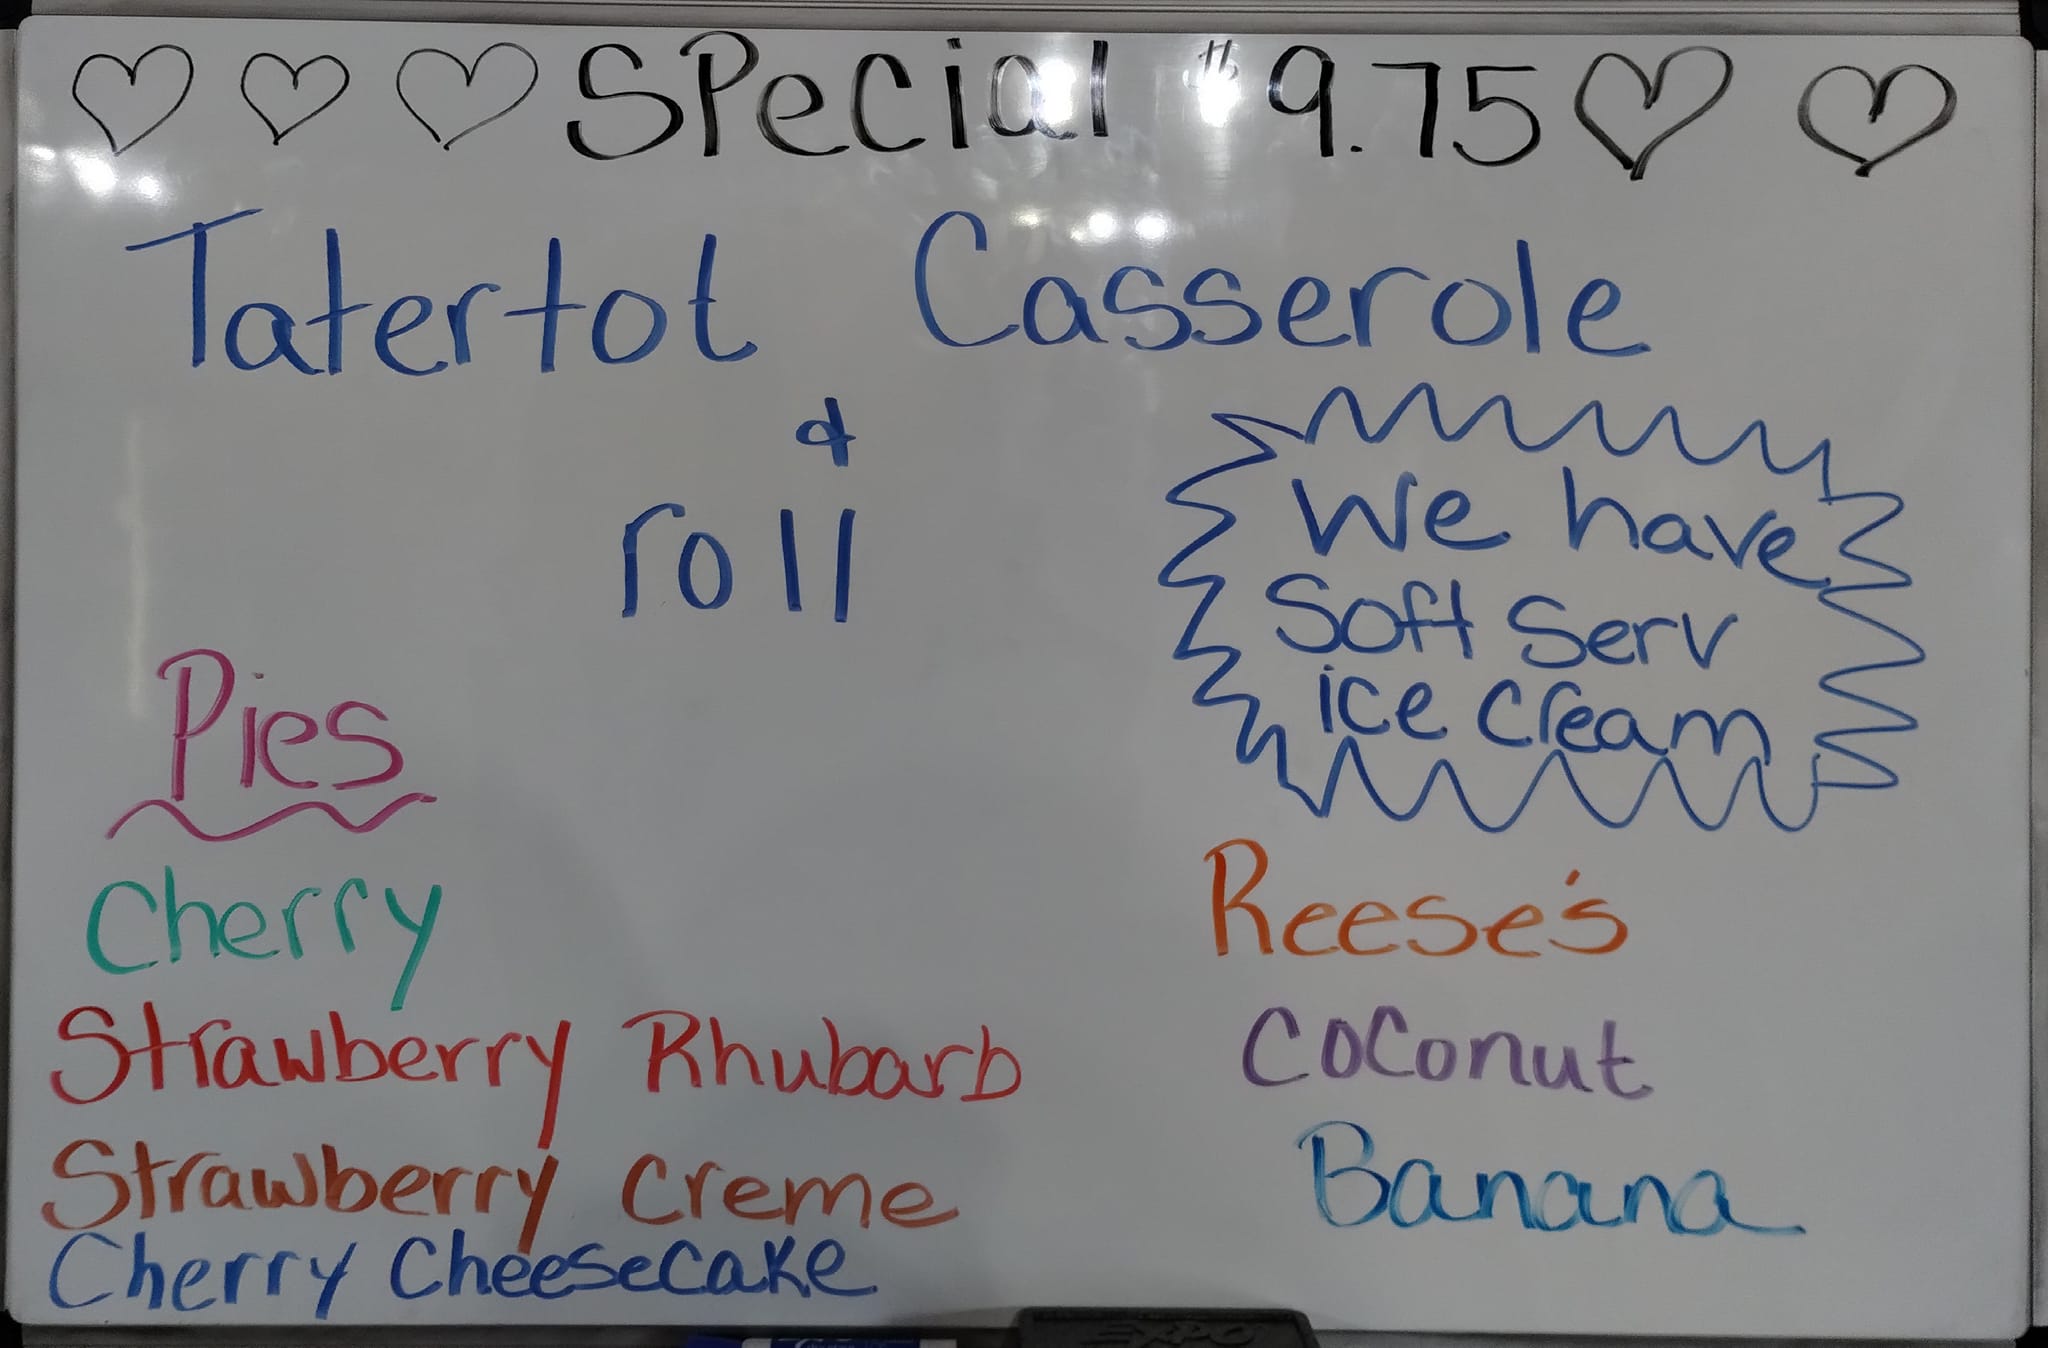 SPecial $9.75
Tatertot Casserole
&
roll
We have
Soft Serv
ice cream
Pies
Cherry
Strawberry Rhubarb
Strawberry Creme
Cherry Cheesecake
Reese's
Coconut
Banana
EXPO